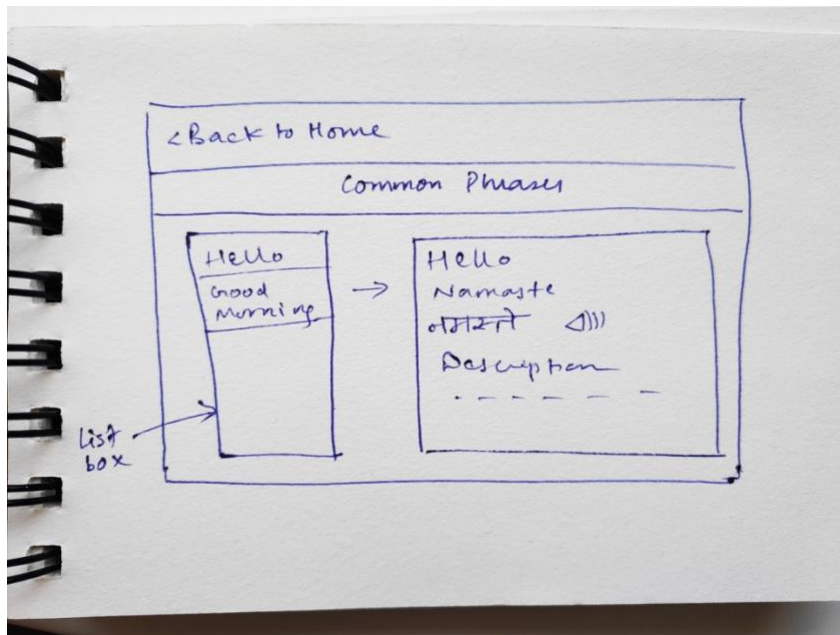 <Back to Home
Common Phrases
Hello
Good
Morning
Hello
Namaste
नमस्ते
Description
List
box